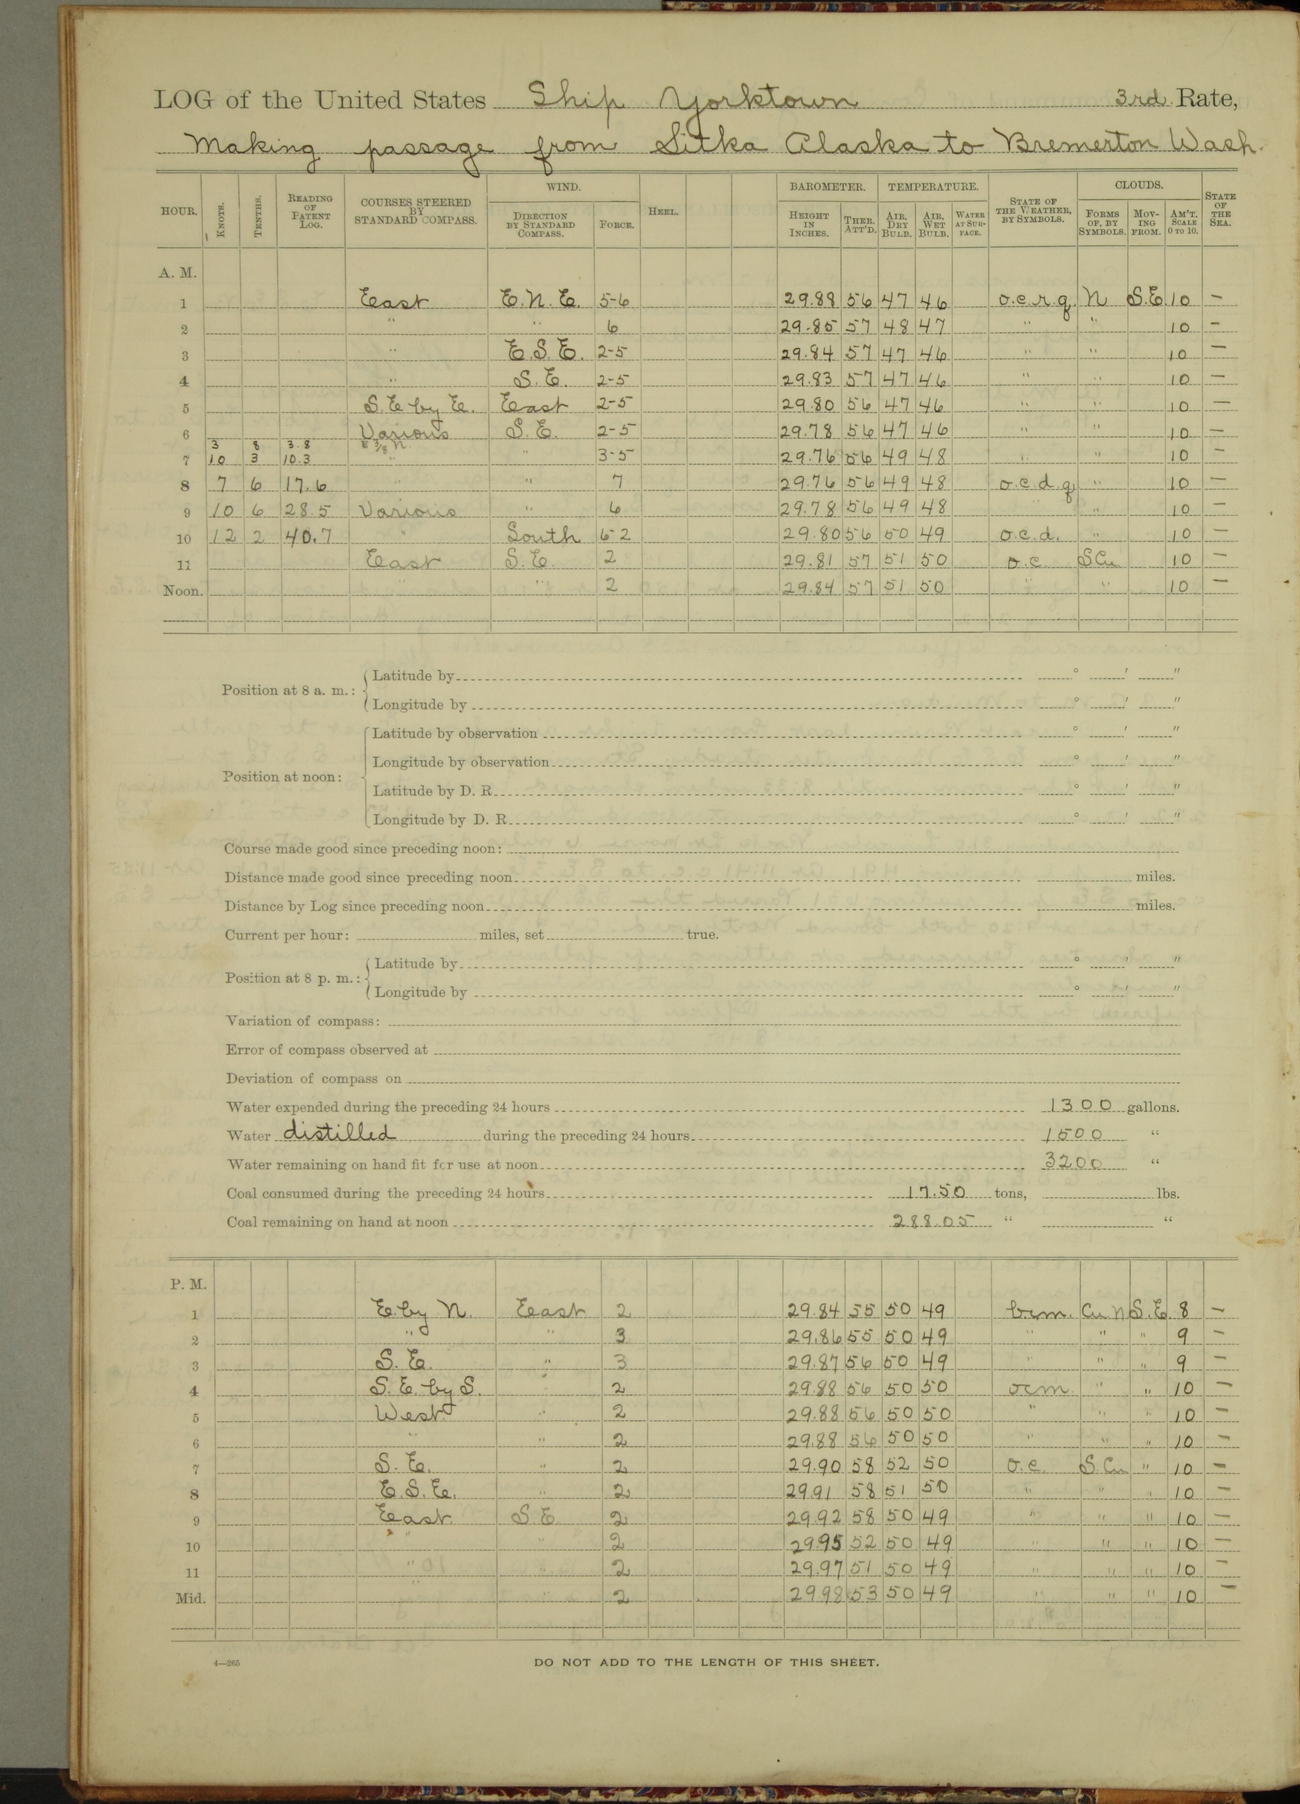 LOG of the United States Ship Yorktown 3rd Rate,
Making passage from Sitka Alaska to Bremerton Wash.
HOUR. KNOTS. TENTHS. READING OF PATENT LOG. COURSES STEERED BY STANDARD COMPASS. WIND. DIRECTION BY STANDARD COMPASS. FORCE. HEEL. BAROMETER. HEIGHT IN INCHES. THER. ATT'D. TEMPERATURE. AIR, DRY BULB. AIR, WET BULB. WATER AT SURFACE. STATE OF THE WEATHER, BY SYMBOLS. CLOUDS. FORMS OF, BY SYMBOLS. MOVING FROM. AM'T. SCALE 0 TO 10. STATE OF THE SEA.
A. M.
1 East E.N.E. 5-6 29.88 56 47 46 o.c.r.q. N S.E. 10 —
2 " " 6 29.85 57 48 47 " " 10 —
3 " E.S.E. 2-5 29.84 57 47 46 " " 10 —
4 " S.E. 2-5 29.83 57 47 46 " " 10 —
5 S.E. by E. East 2-5 29.80 56 47 46 " " 10 —
6 Various S.E. 2-5 29.78 56 47 46 " " 10 —
3 8 3.8 E 3/8 N
7 10 3 10.3 " " 3-5 29.76 56 49 48 " " 10 —
8 7 6 17.6 " " 7 29.76 56 49 48 o.c.d.q. " 10 —
9 10 6 28.5 Various " 6 29.78 56 49 48 " " 10 —
10 12 2 40.7 " South 6-2 29.80 56 50 49 o.c.d. " 10 —
11 East S.E. 2 29.81 57 51 50 o.c. S Cu 10 —
Noon. " " 2 29.84 57 51 50 " " 10 —
Position at 8 a. m.: Latitude by ° ′ ″
Longitude by ° ′ ″
Latitude by observation ° ′ ″
Longitude by observation ° ′ ″
Position at noon:
Latitude by D. R. ° ′ ″
Longitude by D. R. ° ′ ″
Course made good since preceding noon:
Distance made good since preceding noon miles.
Distance by Log since preceding noon miles.
Current per hour: miles, set true.
Position at 8 p. m.: Latitude by ° ′ ″
Longitude by ° ′ ″
Variation of compass:
Error of compass observed at
Deviation of compass on
Water expended during the preceding 24 hours 1300 gallons.
Water distilled during the preceding 24 hours 1500 "
Water remaining on hand fit for use at noon 3200 "
Coal consumed during the preceding 24 hours 17.50 tons, lbs.
Coal remaining on hand at noon 288.05 " "
P. M.
1 E. by N. East 2 29.84 55 50 49 b.c.m. Cu N S.E. 8 —
2 " " 3 29.86 55 50 49 " " " 9 —
3 S. E. " 3 29.87 56 50 49 " " " 9 —
4 S. E. by S. " 2 29.88 56 50 50 o.c.m. " " 10 —
5 West " 2 29.88 56 50 50 " " " 10 —
6 " " 2 29.88 56 50 50 " " " 10 —
7 S. E. " 2 29.90 58 52 50 o.c. S.Cu " 10 —
8 E. S. E. " 2 29.91 58 51 50 " " " 10 —
9 East S.E. 2 29.92 58 50 49 " " " 10 —
10 " " 2 29.95 52 50 49 " " " 10 —
11 " " 2 29.97 51 50 49 " " " 10 —
Mid. " " 2 29.98 53 50 49 " " " 10 —
4—265 DO NOT ADD TO THE LENGTH OF THIS SHEET.